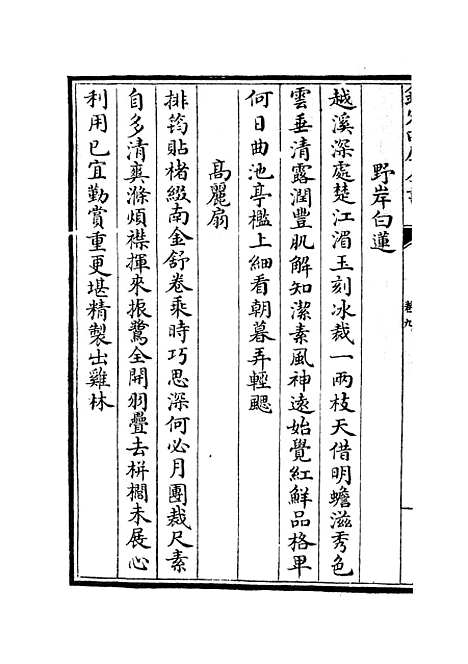 野岸白蓮
越溪深處楚江湄玉刻冰裁一兩枝天借明蟾滋秀色
雲垂清露潤豐肌解知潔素風神遠始覺紅鮮品格卑
何日曲池亭檻上細看朝暮弄輕颸
高麗扇
排筠貼楮綴南金舒卷乘時巧思深何必月團裁尺素
自多清爽滌煩襟揮來振鷺全開羽疊去栟櫚未展心
利用已宜勤賞重更堪精製出雞林